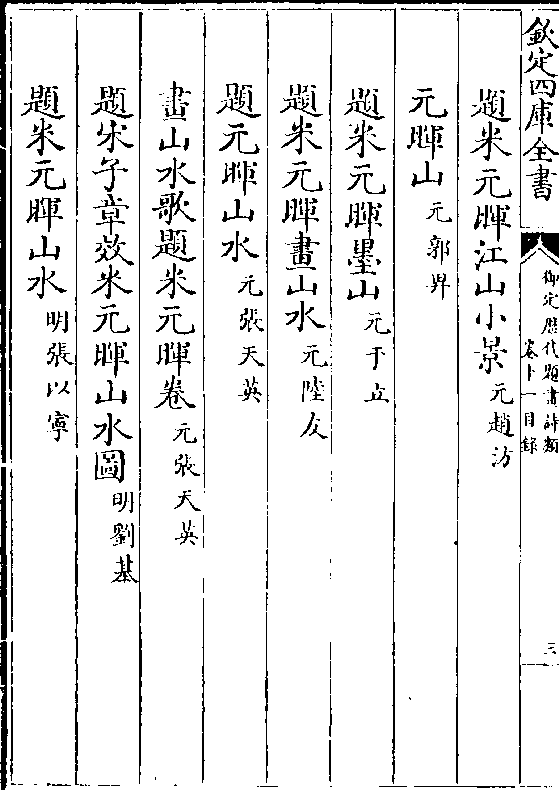 欽定四庫全書
御定歴代題畫詩類
卷十一目録
三
題米元暉江山小景 元趙汸
元暉山 元郭昇
題米元暉墨山 元于立
題米元暉畫山水 元陸友
題元暉山水 元張天英
畫山水歌題米元暉卷 元張天英
題宋子章效米元暉山水圖 明劉基
題米元暉山水 明張以寧